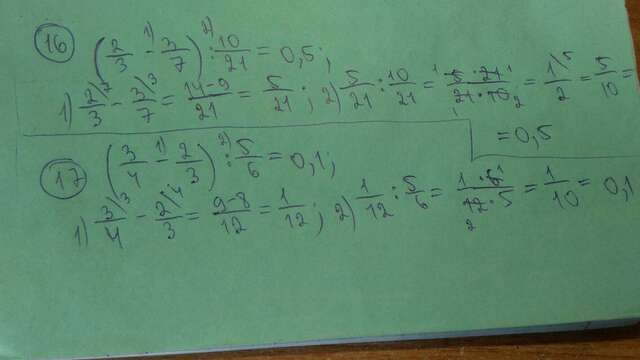 16 (2/3 - 3/7) : 10/21 = 0,5;
1) 2/3 - 3/7 = 14-9/21 = 5/21; 2) 5/21 : 10/21 = 5·21/21·10 = 1/2 = 5/10 =
= 0,5
17 (3/4 - 2/3) : 5/6 = 0,1;
1) 3/4 - 2/3 = 9-8/12 = 1/12; 2) 1/12 : 5/6 = 1·6/12·5 = 1/10 = 0,1